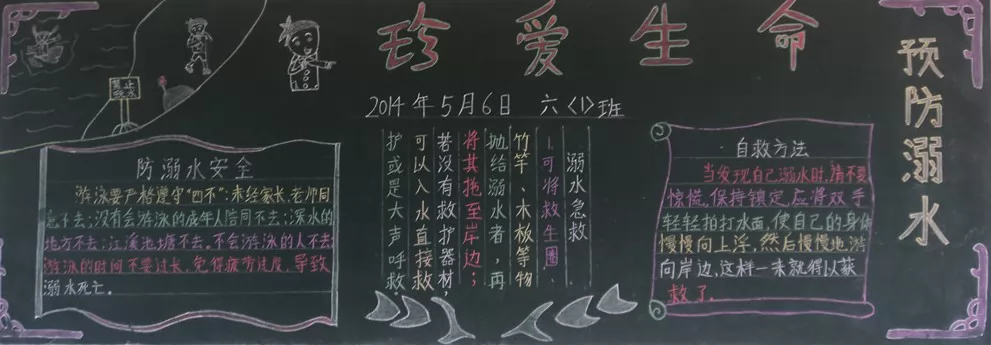 珍爱生命
预防溺水
2014年5月6日 六〈1〉班
禁止
防溺水安全
游泳要严格遵守“四不”:未经家长、老师同
意不去;没有会游泳的成年人陪同不去;深水的
地方不去;江溪池塘不去。不会游泳的人不去
游泳的时间不要过长,免得疲劳过度,导致
溺水死亡。
溺水急救
1.可将救生圈、
竹竿、木板等物
抛给溺水者,再
将其拖至岸边;
若没有救护器材,
可以入水直接救
护或是大声呼救。
自救方法
当发现自己溺水时,请不要
惊慌,保持镇定,应将双手
轻轻拍打水面,使自己的身体
慢慢向上浮,然后慢慢地游
向岸边,这样一来就得以获
救了。